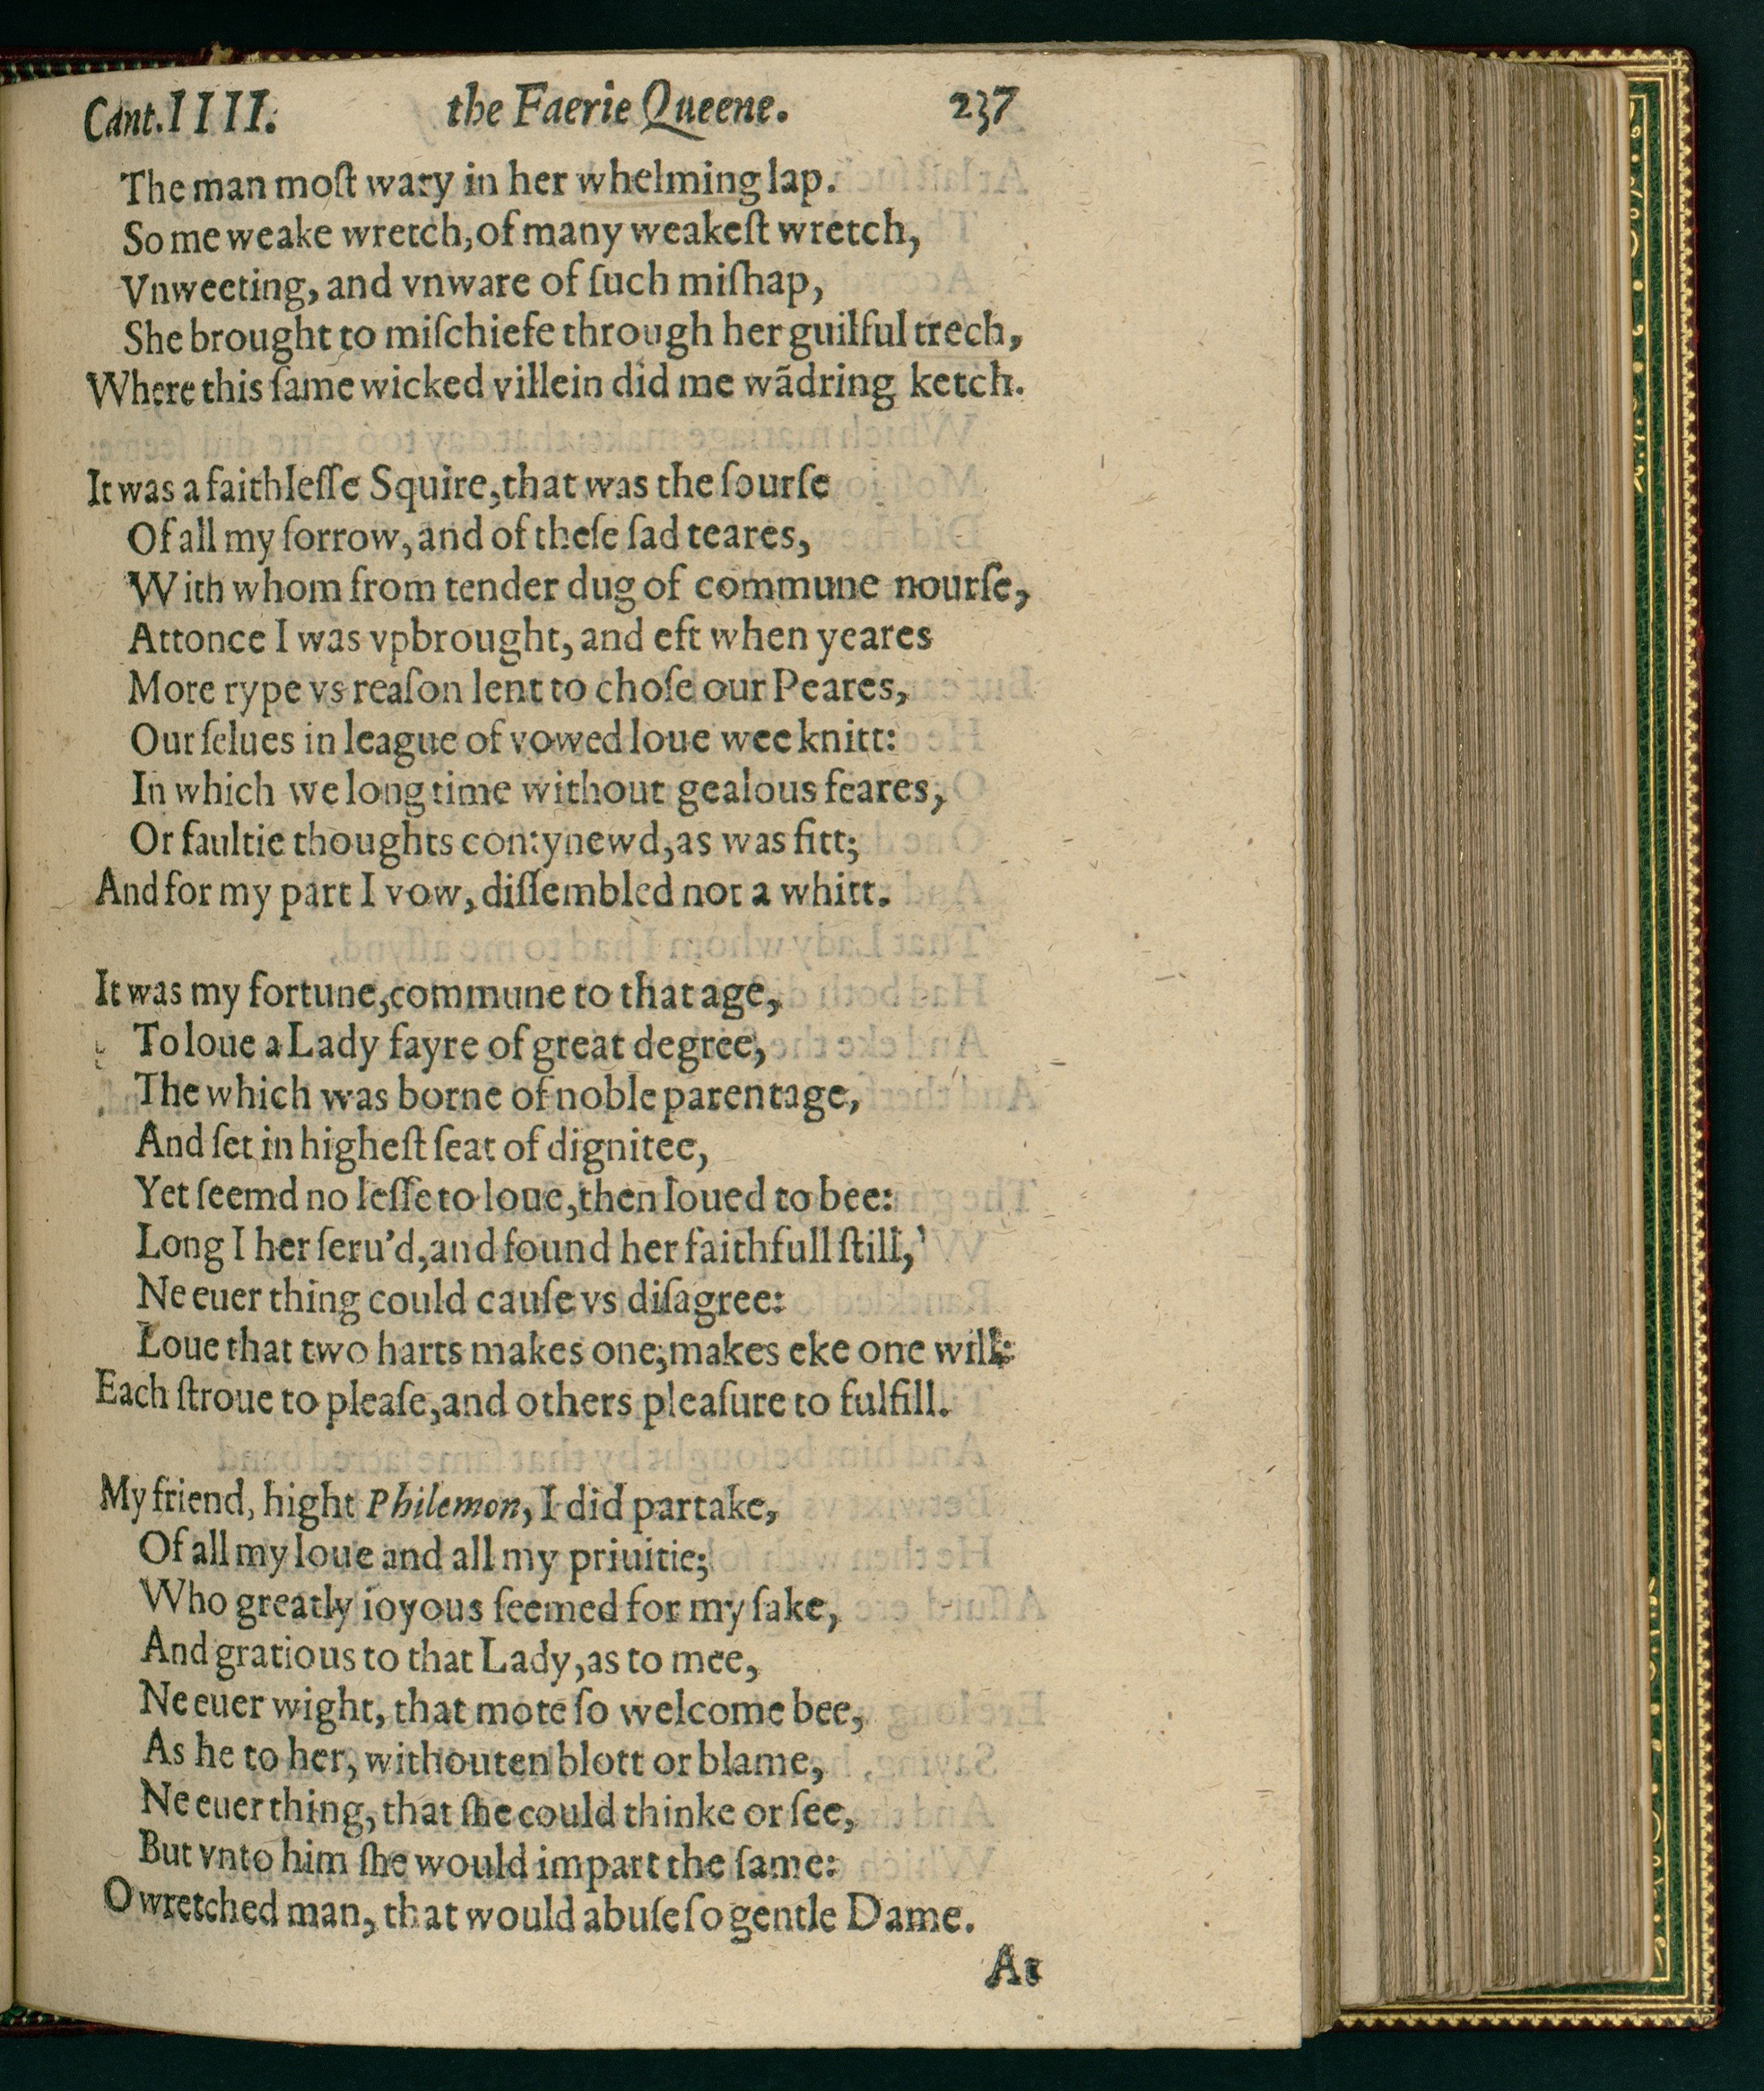 Cant.IIII. the Faerie Queene. 237
The man moſt wary in her whelming lap.
Some weake wretch, of many weakeſt wretch,
Vnweeting, and vnware of ſuch miſhap,
She brought to miſchiefe through her guilful trech,
Where this ſame wicked villein did me wãdring ketch.
It was a faithleſſe Squire, that was the ſourſe
Of all my ſorrow, and of theſe ſad teares,
With whom from tender dug of commune nourſe,
Attonce I was vpbrought, and eft when yeares
More rype vs reaſon lent to choſe our Peares,
Our ſelues in league of vowed loue wee knitt:
In which we long time without gealous feares,
Or faultie thoughts contynewd, as was fitt;
And for my part I vow, diſſembled not a whitt.
It was my fortune, commune to that age,
To loue a Lady fayre of great degree,
The which was borne of noble parentage,
And ſet in higheſt ſeat of dignitee,
Yet ſeemd no leſſe to loue, then loued to bee:
Long I her ſeru'd, and found her faithfull ſtill,
Ne euer thing could cauſe vs diſagree:
Loue that two harts makes one; makes eke one will:
Each ſtroue to pleaſe, and others pleaſure to fulfill.
My friend, hight Philemon, I did partake,
Of all my loue and all my priuitie;
Who greatly ioyous ſeemed for my ſake,
And gratious to that Lady, as to mee,
Ne euer wight, that mote ſo welcome bee,
As he to her, withouten blott or blame,
Ne euer thing, that ſhe could thinke or ſee,
But vnto him ſhe would impart the ſame:
O wretched man, that would abuſe ſo gentle Dame.
At